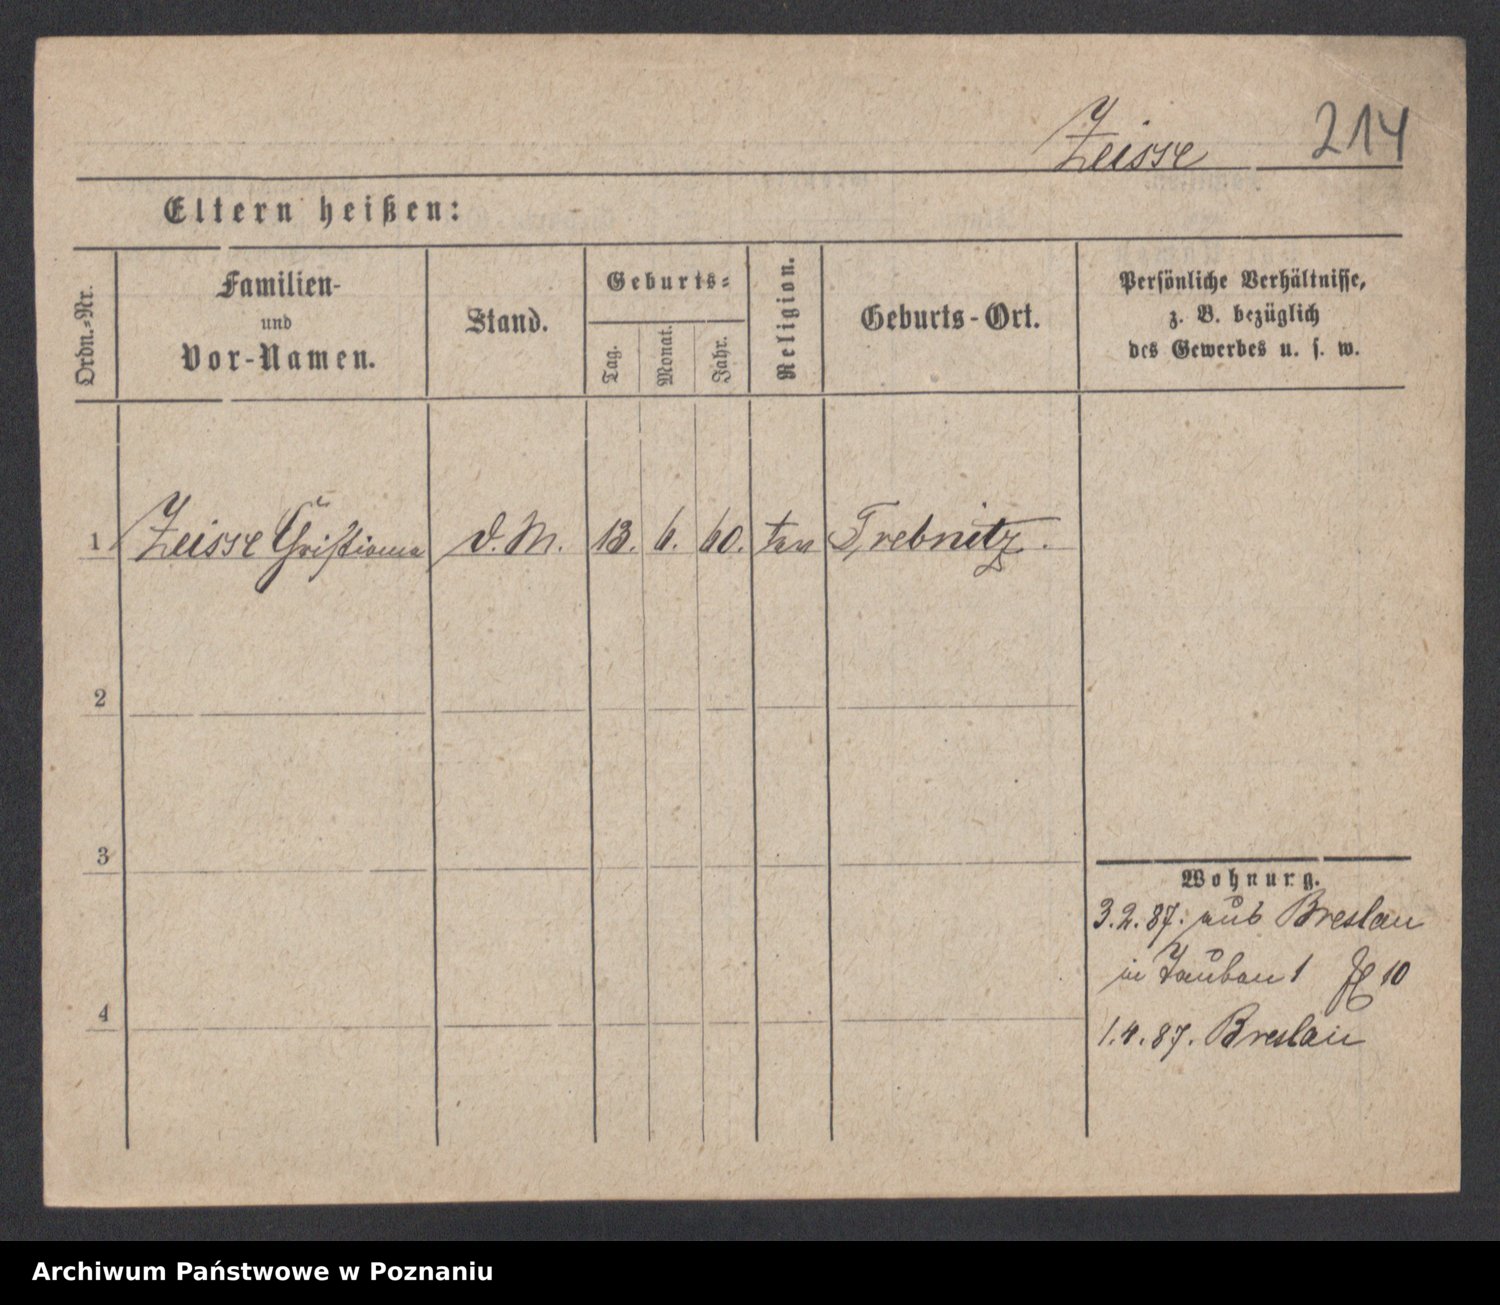 Zeisse 214
Eltern heißen:
Ordn.-Nr.
Familien-
und
Vor-Namen.
Stand.
Geburts-
Tag.
Monat.
Jahr.
Religion.
Geburts-Ort.
Persönliche Verhältnisse,
z. B. bezüglich
des Gewerbes u. s. w.
1 Zeisse Christiane D. M. 13. 6. 60. Trebnitz.
2
3
4
Wohnung.
3.2.87. aus Breslau
in 1 10
1.4.87. Breslau
Archiwum Państwowe w Poznaniu